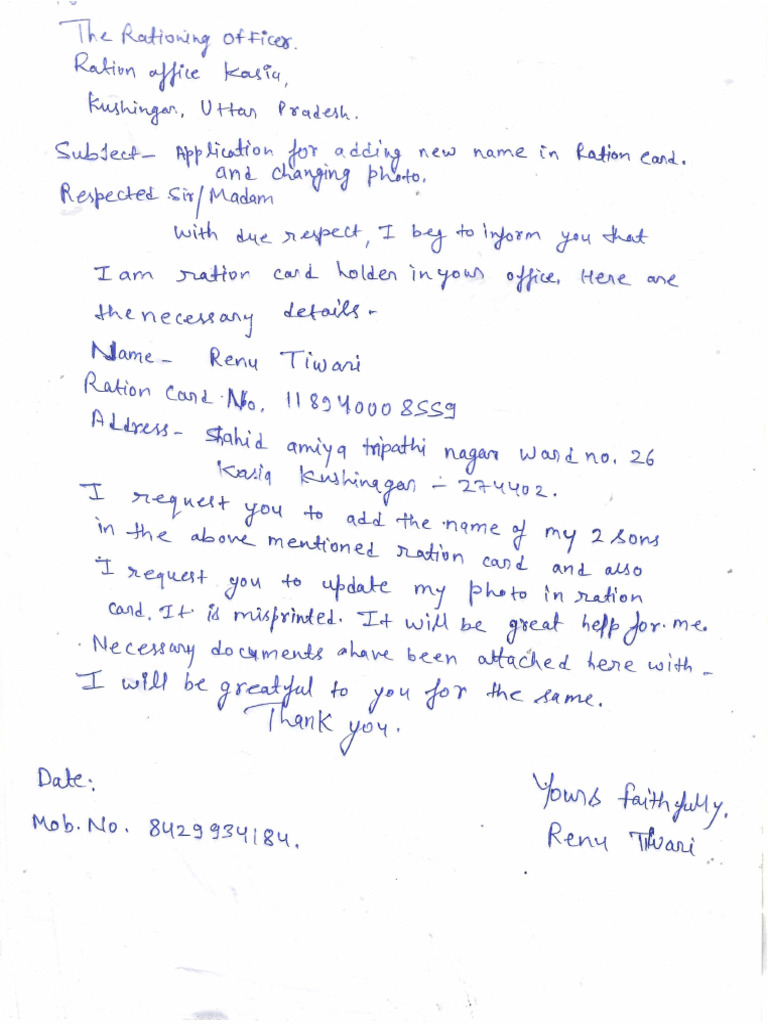 The Rationing Officer.
Ration office Kasia,
Kushingar, Uttar Pradesh.
Subject - Application for adding new name in Ration Card.
and changing photo.
Respected Sir/Madam
with due respect, I beg to inform you that
I am ration card holder in your office. Here are
the necessary details -
Name - Renu Tiwari
Ration Card No. 118940008559
Address - Shahid amiya tripathi nagar ward no. 26
Kasia Kushinagar - 274402.
I request you to add the name of my 2 sons
in the above mentioned ration card and also
I request you to update my photo in ration
card. It is misprinted. It will be great help for me.
Necessary documents ahave been attached here with -
I will be greatful to you for the same.
Thank you.
Date:
Yours faithfully,
Mob. No. 8429934184.
Renu Tiwari